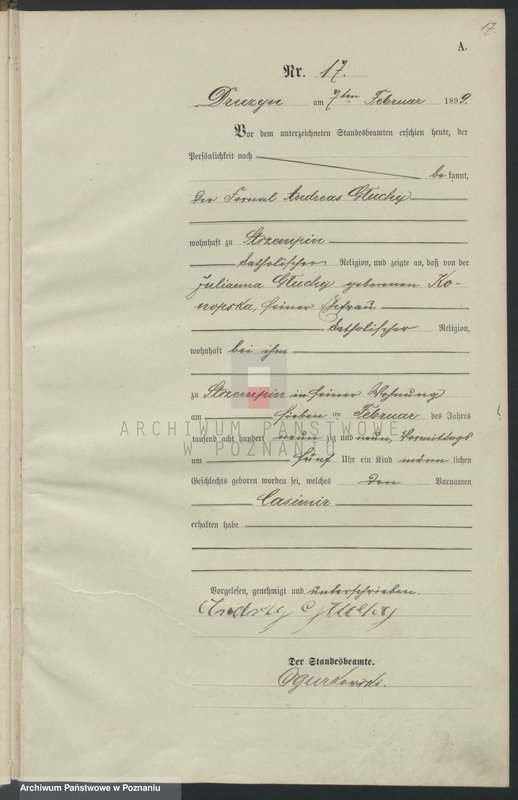 17.
A.
Nr. 17.
Druzyn am 7ten Februar 1899.
Vor dem unterzeichneten Standesbeamten erschien heute, der
Persönlichkeit nach
be kannt,
der Fornal Andreas Głuchy
wohnhaft zu Strzempin
katholischer Religion, und zeigte an, daß von der
Julianna Głuchy geborenen Ko-
nopska, seiner Ehefrau
katholischer Religion,
wohnhaft bei ihm
zu Strzempin in seiner Wohnung
am sieben ten Februar des Jahres
tausend acht hundert neun zig und neun, Vormittags
um fünf Uhr ein Kind männ lichen
Geschlechts geboren worden sei, welches den Vornamen
Casimir
erhalten habe
Vorgelesen, genehmigt und unterschrieben.
Andrzej Głuchy
Der Standesbeamte.
Ogurkowski.
ARCHIWUM PAŃSTWOWE
W POZNANIU
Archiwum Państwowe w Poznaniu